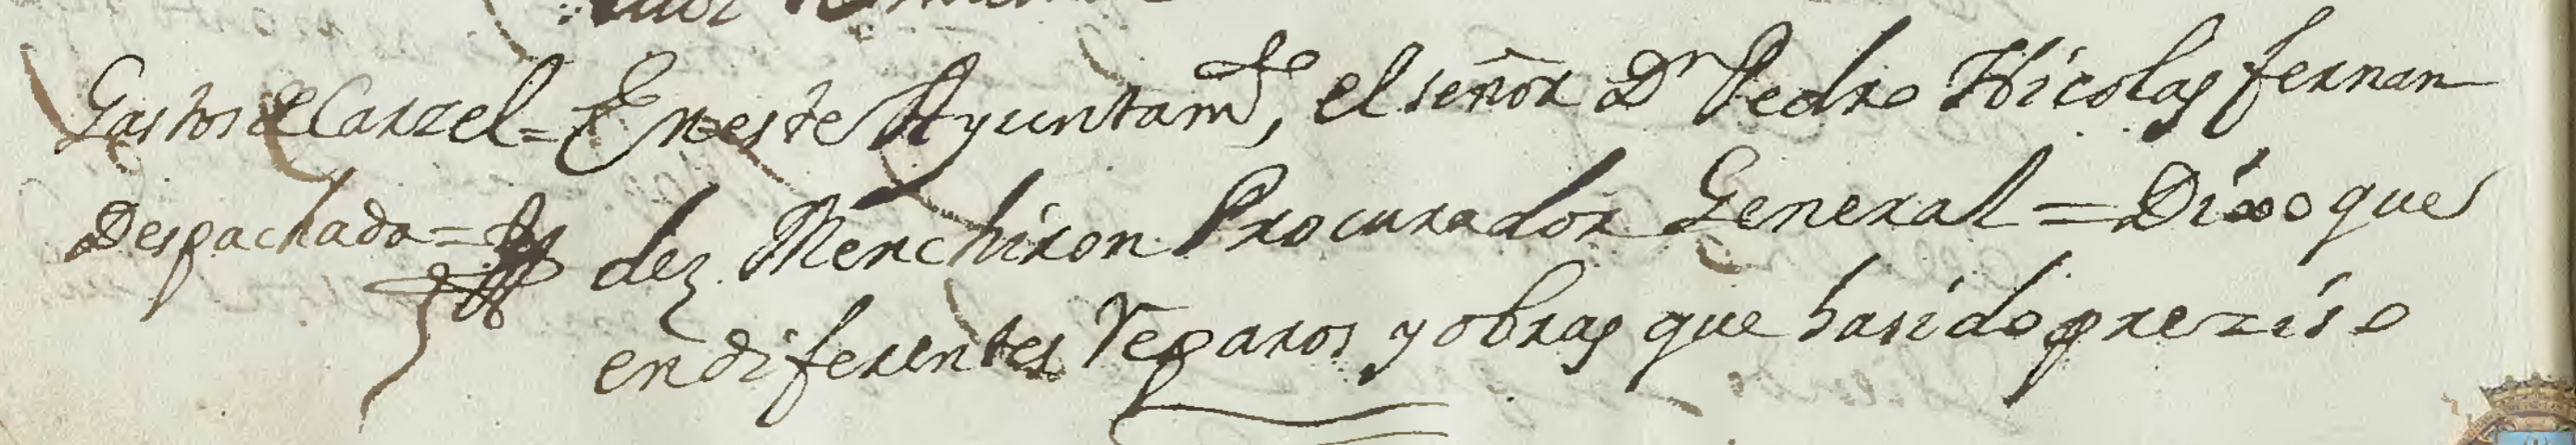 Gastos de Carzel = En este Ayuntamto, el señor Dn Pedro Nicolas fernan
Despachada = dez Menchiron Procurador General = Dixo que
en diferentes reparos y obras que ha sido preziso